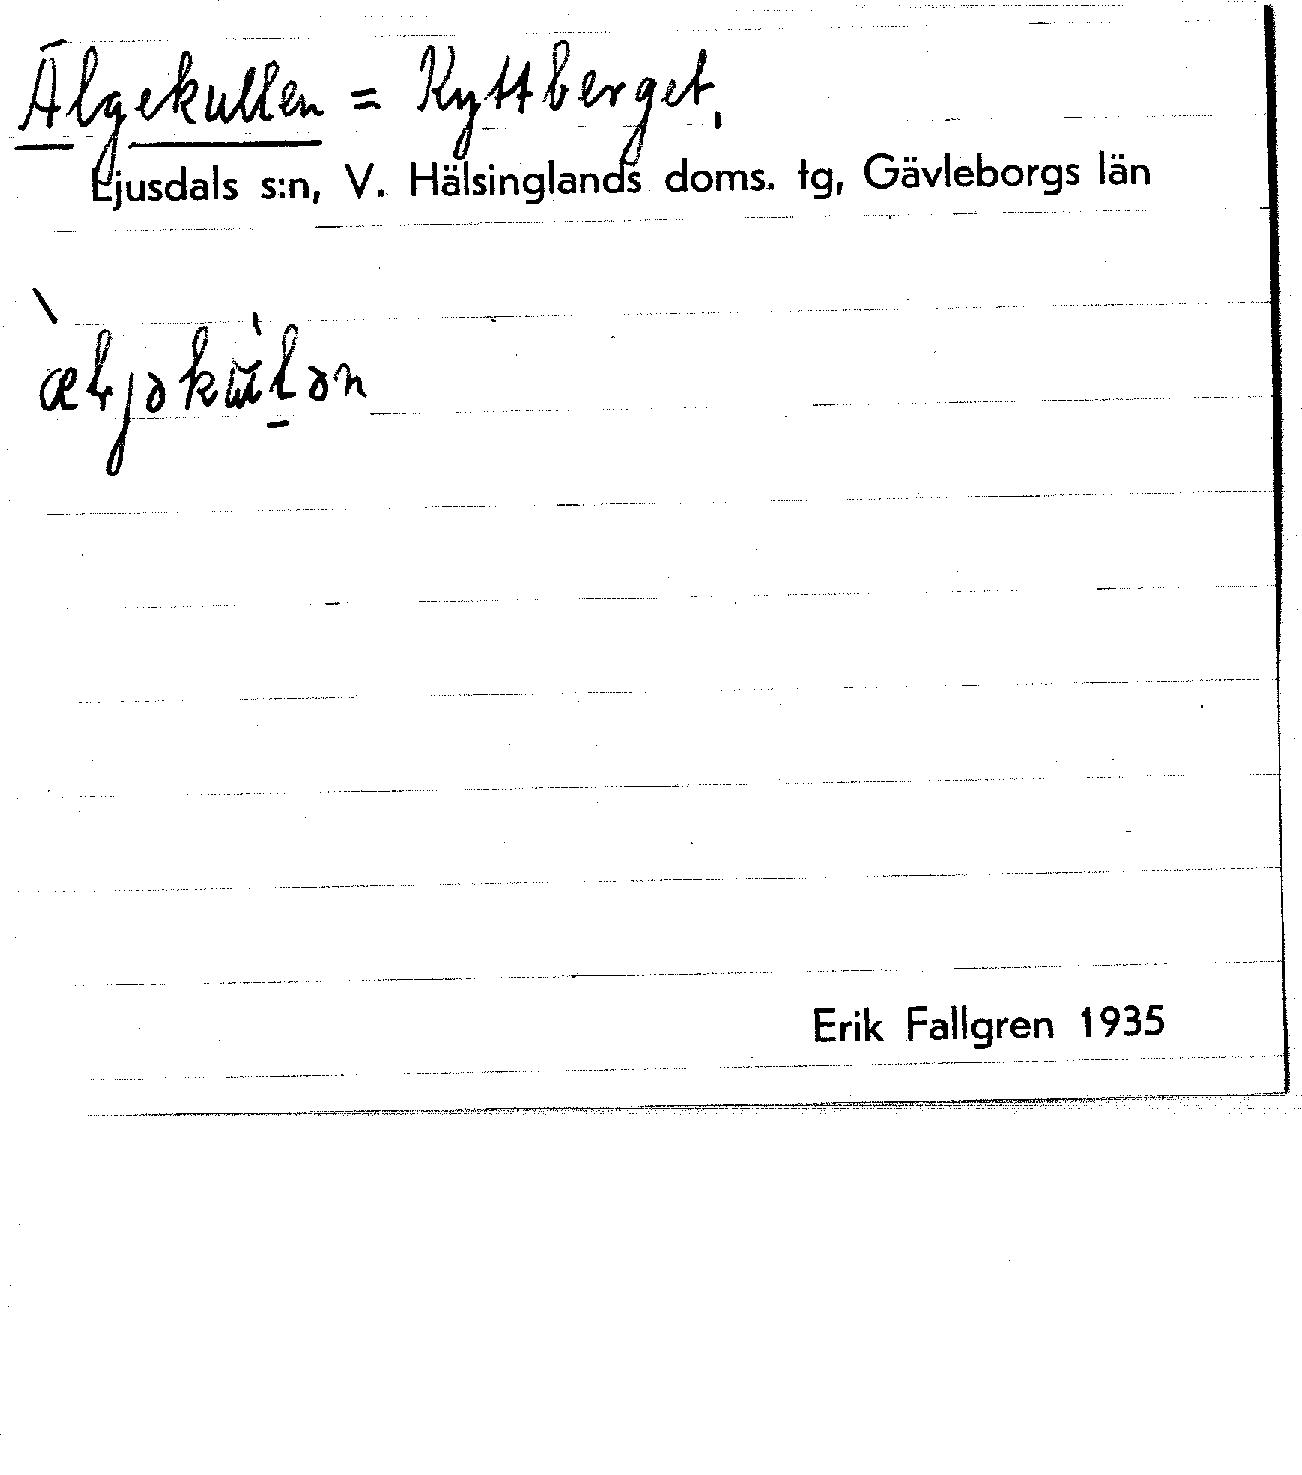 Älgekullen = Kyttberget,
Ljusdals s:n, V. Hälsinglands doms. tg, Gävleborgs län
Erik Fallgren 1935